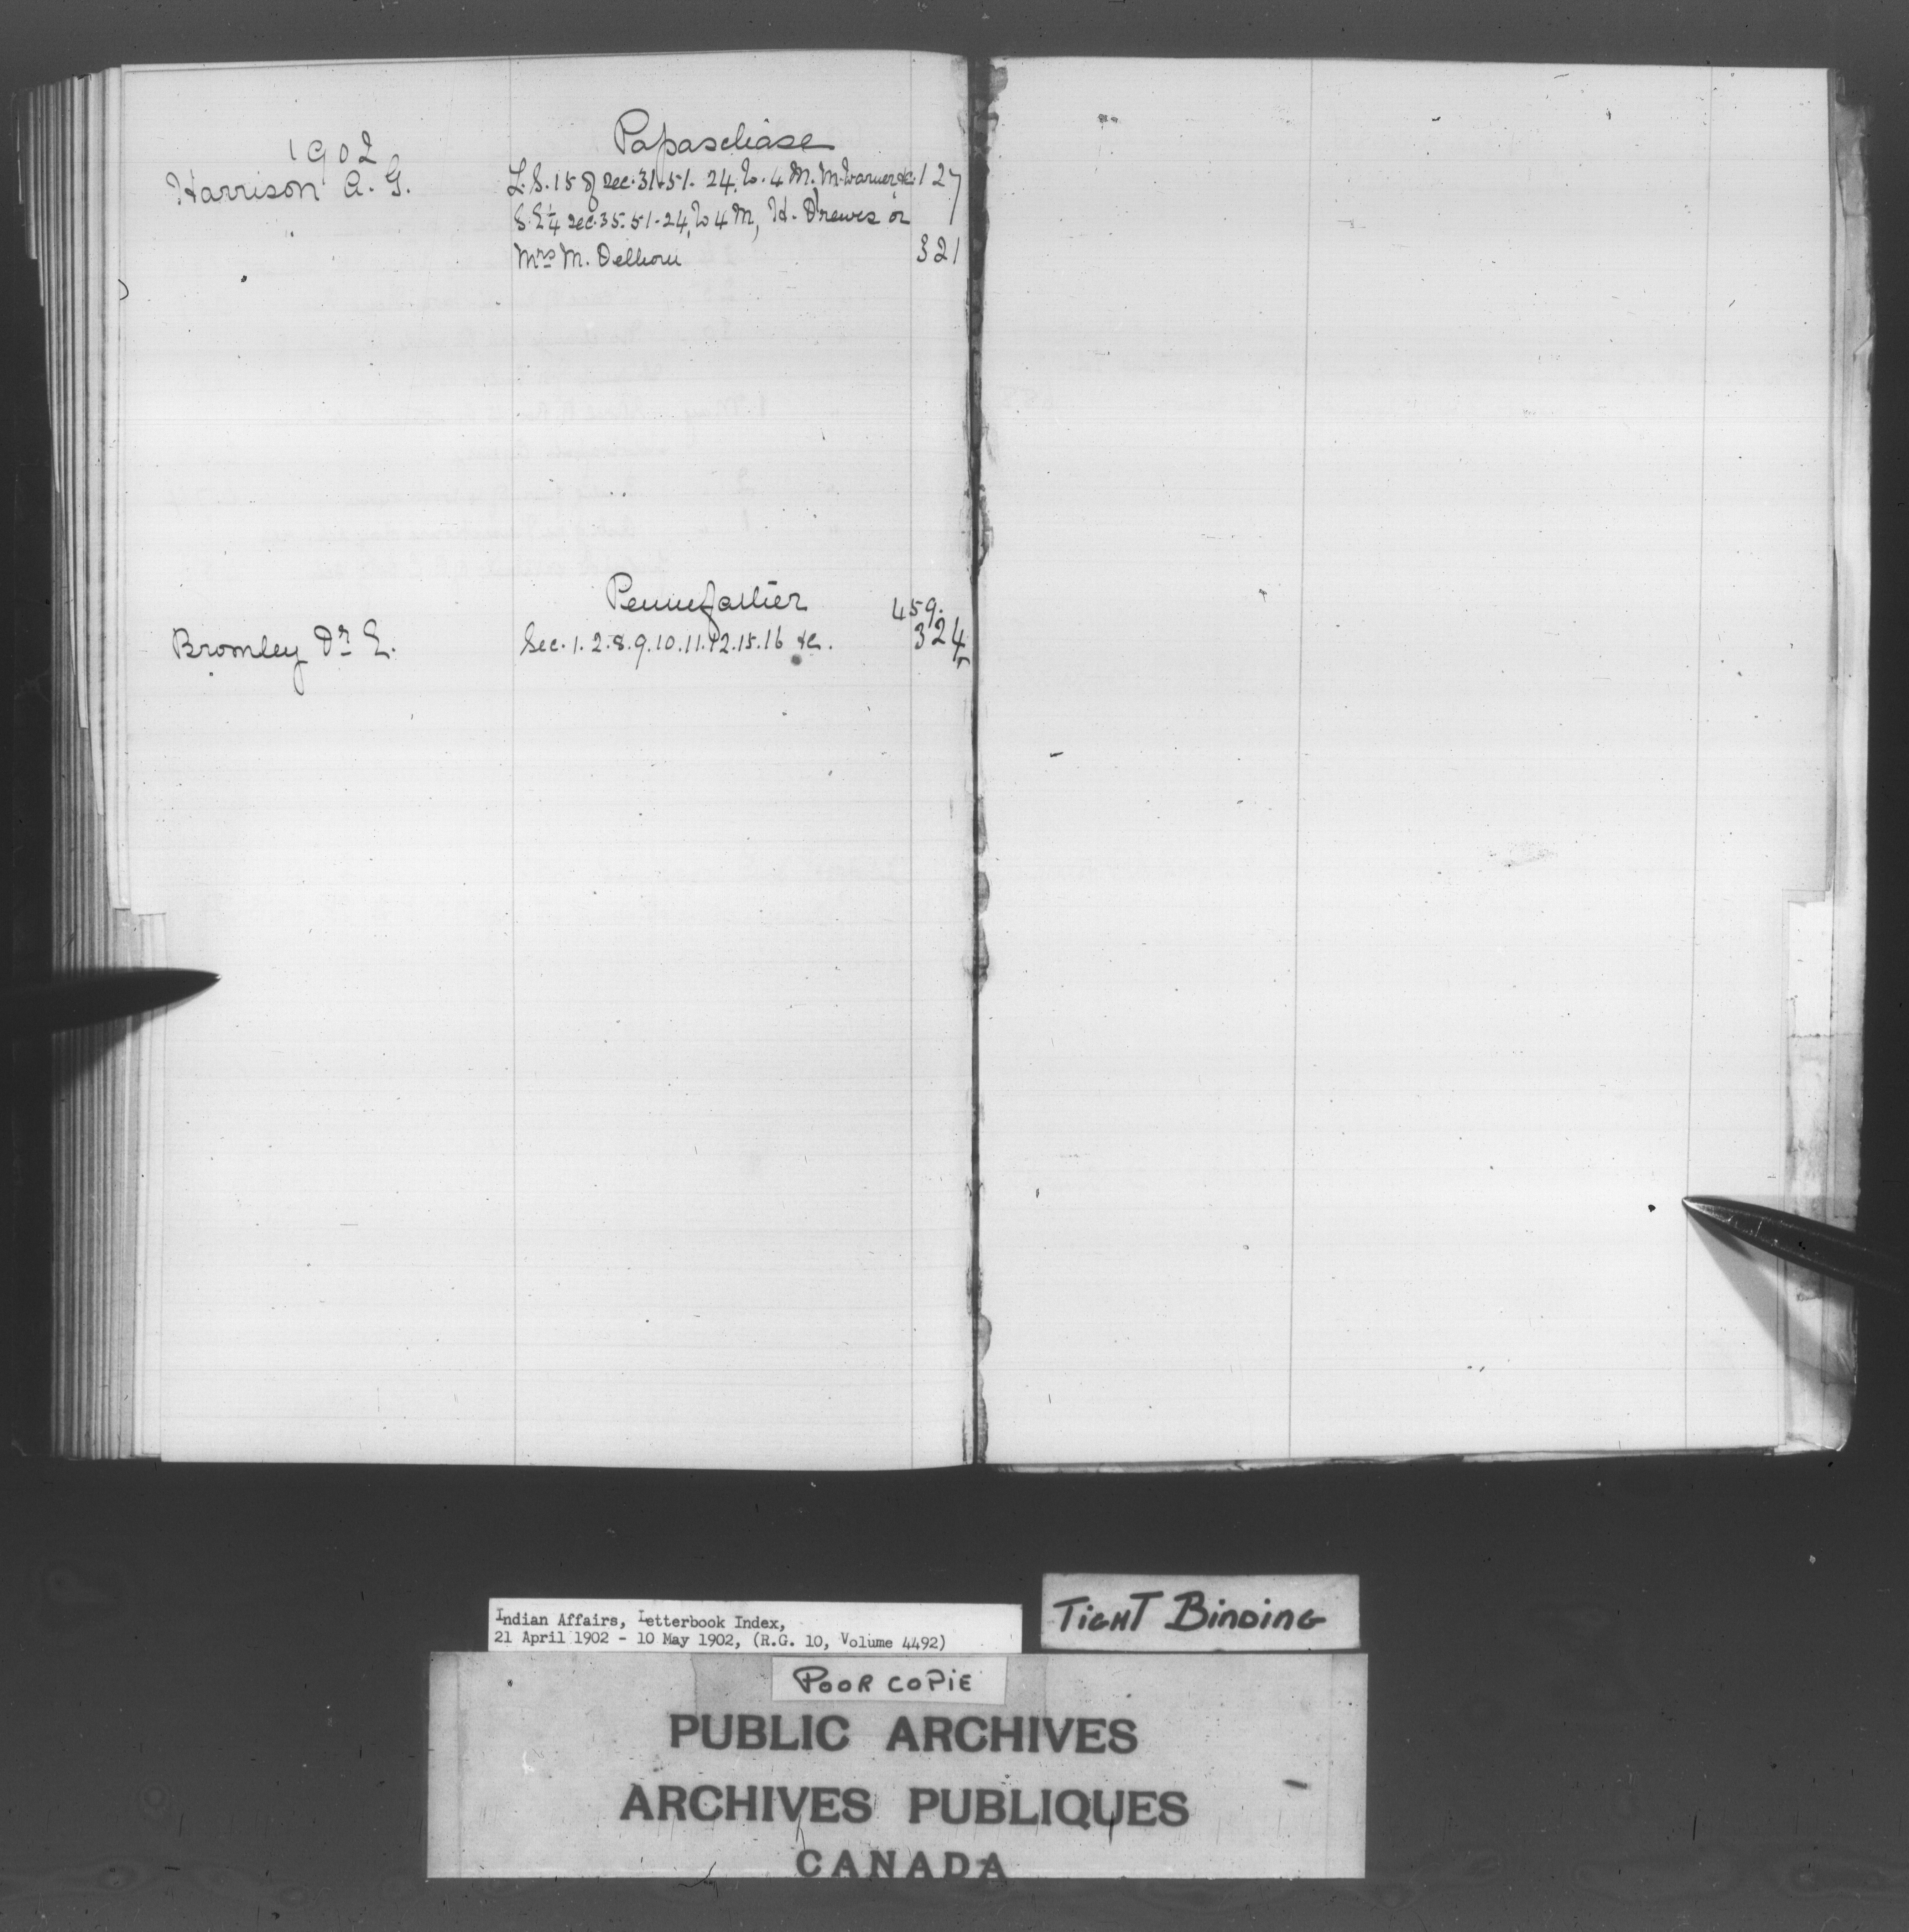 1902
Papaschase
Harrison A. G. L.S. 15 of Sec. 31. 51. 24, W. 4 M. M. Warner, &c. 127
S.E ¼ Sec. 35. 51. 24, W 4 M, H. Drewes or
Mrs M. Delhorn 321
Pennefather
459.
Bromley Dr E. Sec. 1. 2. 8. 9. 10. 11. 12. 15. 16 &c. 324
Indian Affairs, Letterbook Index,
21 April 1902 - 10 May 1902, (R.G. 10, Volume 4492)
TIGHT BINDING
POOR COPIE
PUBLIC ARCHIVES
ARCHIVES PUBLIQUES
CANADA